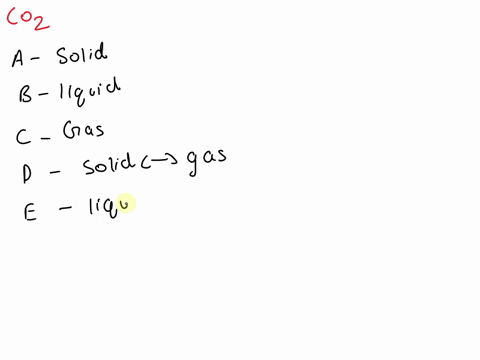 CO2
A - Solid
B - liquid
C - Gas
D - Solid <-> gas
E - liqu